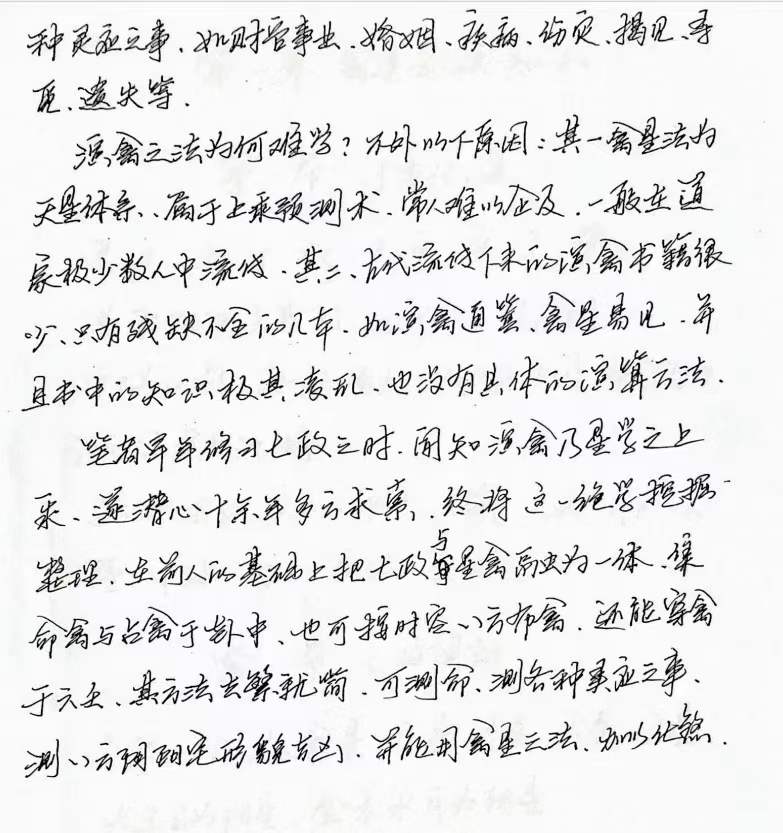 种灵应之事、如财官事业、婚姻、疾病、伤灾、揭见、寻
匿、遗失等.
演禽之法为何难学？不外以下原因：其一禽星法为
天星体系、属于上乘预测术、常人难以企及. 一般在道
家极少数人中流传. 其二、古代流传下来的演禽书籍很
少、只有残缺不全的几本. 如演禽通纂、禽星易见. 并
且书中的知识极其凌乱. 也没有具体的演算方法.
笔者早年修习七政之时. 闻知演禽乃星学之上
乘、遂潜心十余年多方求索、终将这一绝学挖掘
整理. 在前人的基础上把七政与星禽融为一体. 集
命禽与占禽于卦中、也可按时空八方布禽. 还能穿禽
于六壬、其方法去繁就简. 可测命、测各种灵应之事、
测八方阴阳宅形貌吉凶. 并能用禽星之法、加以化煞.